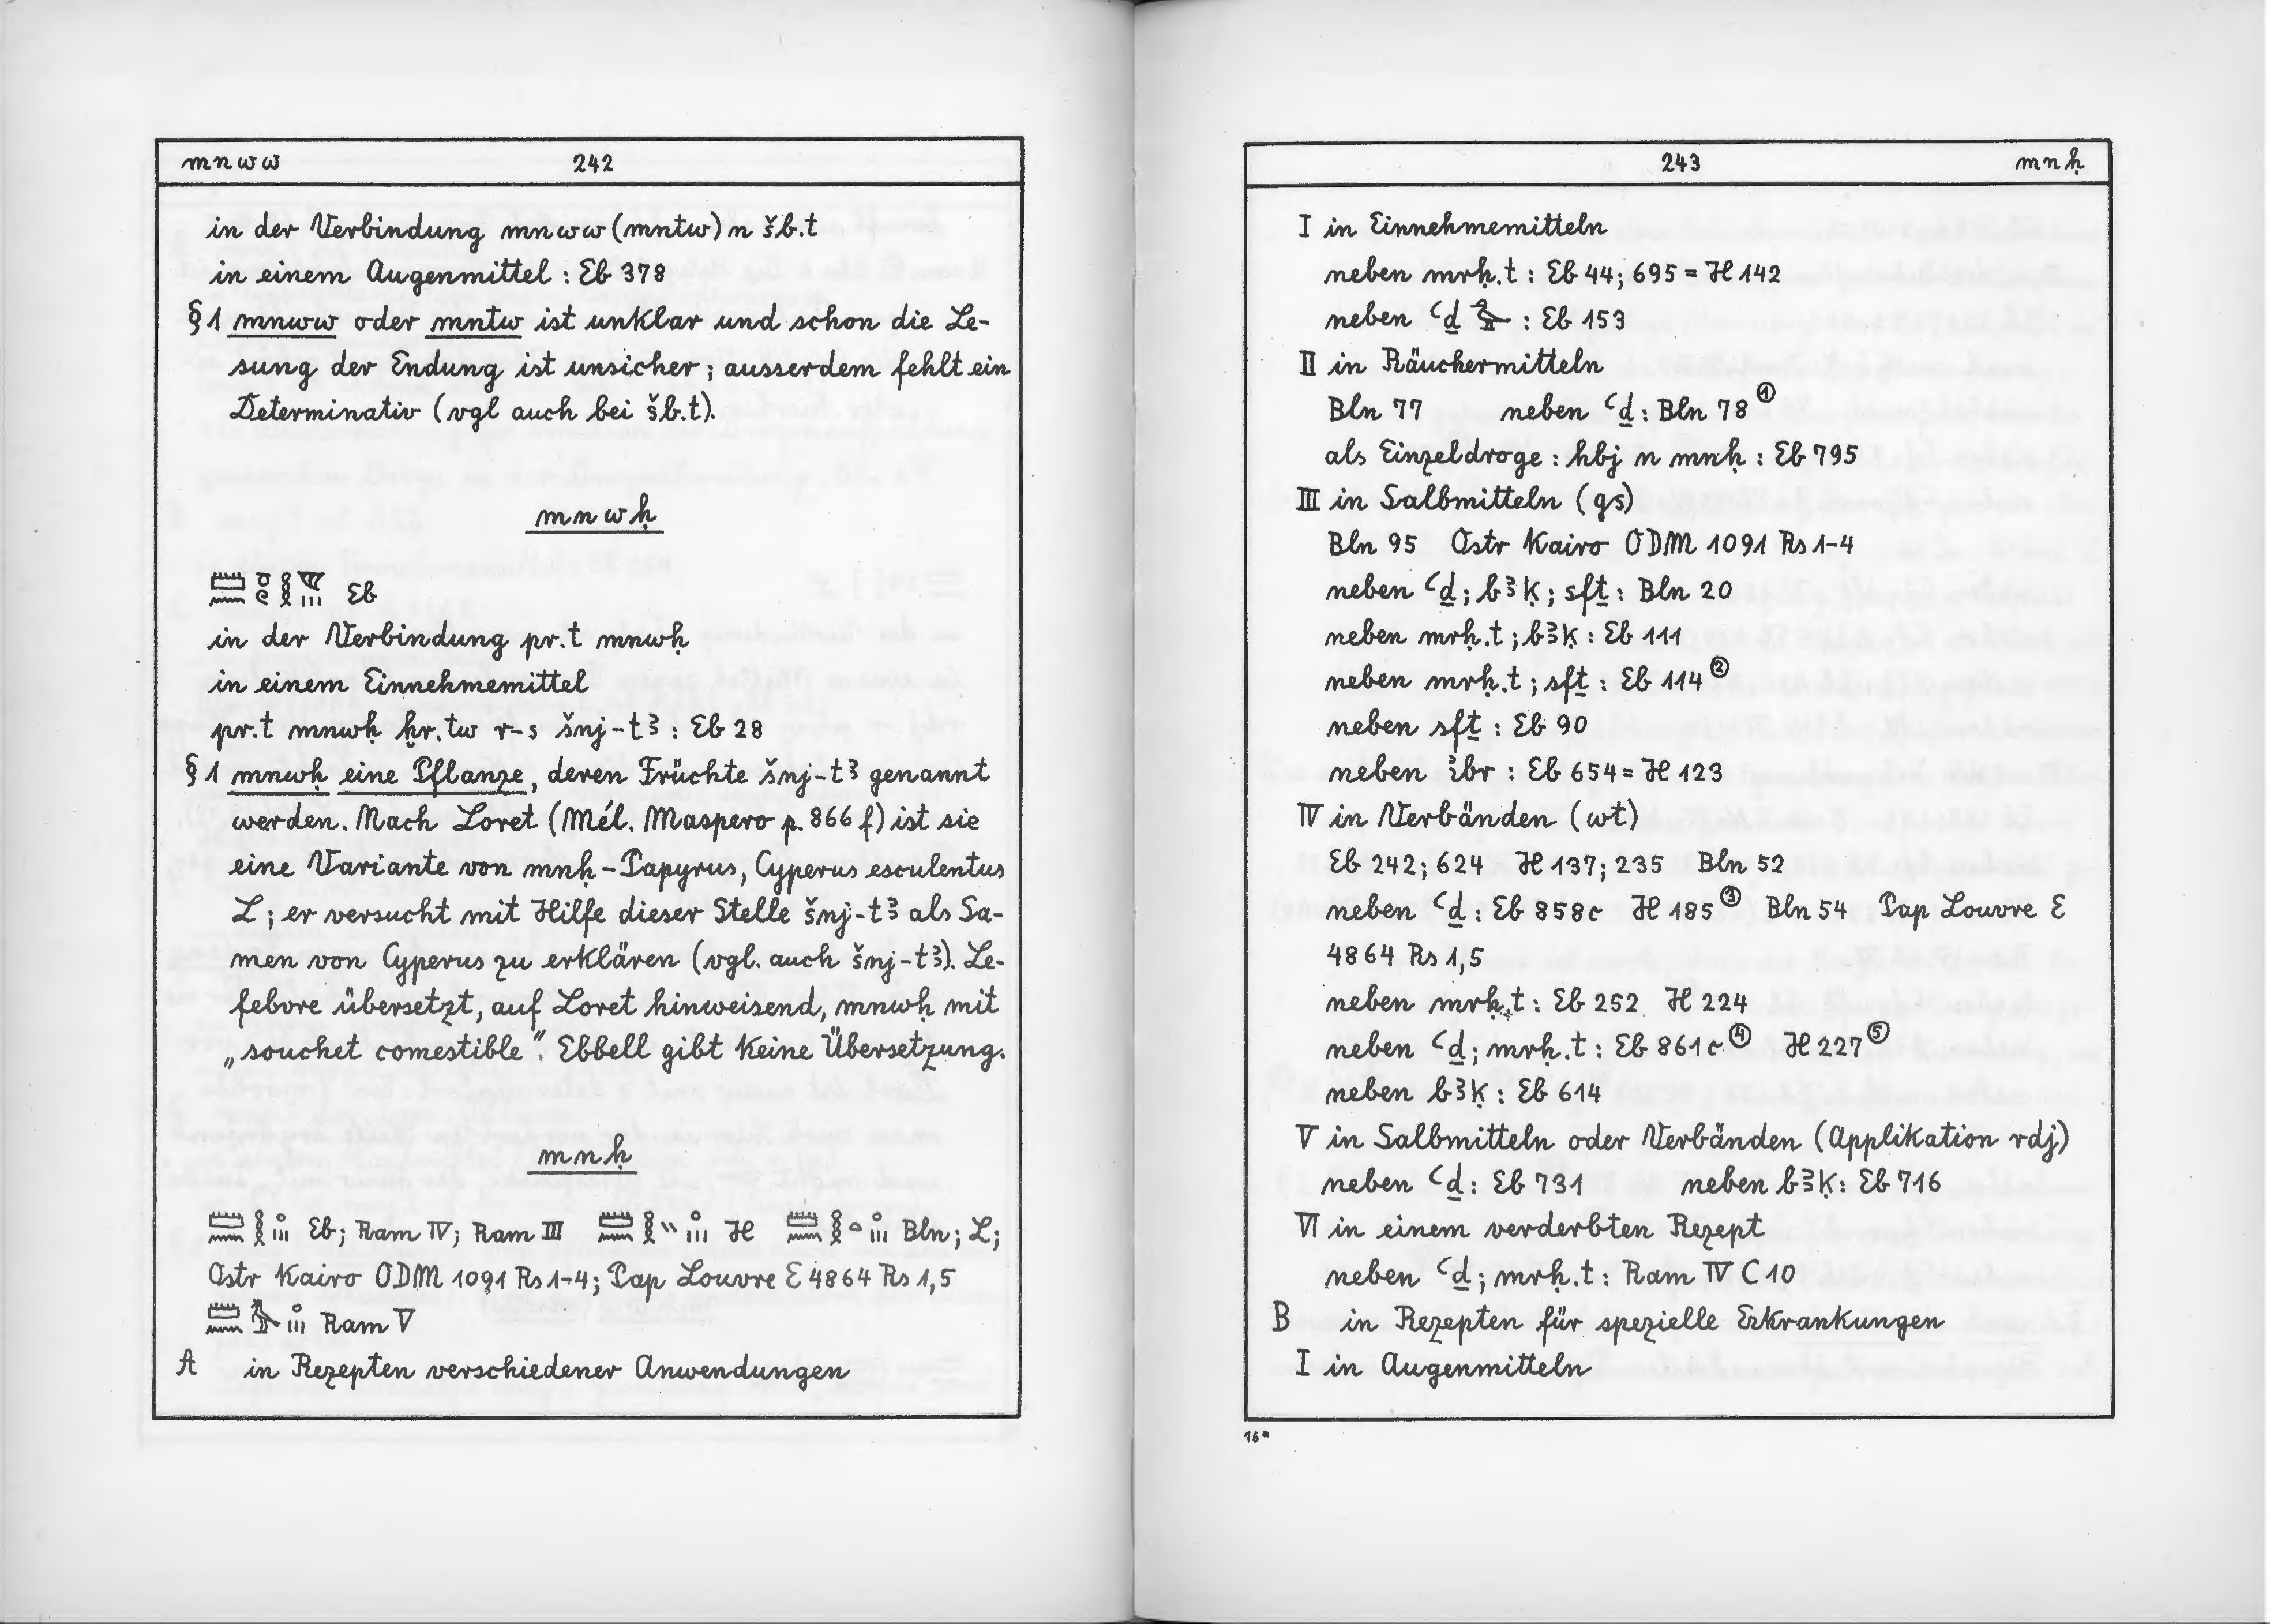 mnww 242
in der Verbindung mnww (mntw) n šb.t
in einem Augenmittel : Eb 378
§ 1 mnww oder mntw ist unklar und schon die Le-
sung der Endung ist unsicher ; ausserdem fehlt ein
Determinativ (vgl auch bei šb.t).
mnwḥ
Eb
in der Verbindung pr.t mnwḥ
in einem Einnehmemittel
pr.t mnwḥ ḫr.tw r-s šnj-tꜣ : Eb 28
§ 1 mnwḥ eine Pflanze, deren Früchte šnj-tꜣ genannt
werden. Nach Loret (Mél. Maspero p. 866 f) ist sie
eine Variante von mnḥ - Papyrus, Cyperus esculentus
L ; er versucht mit Hilfe dieser Stelle šnj-tꜣ als Sa-
men von Cyperus zu erklären (vgl. auch šnj-tꜣ). Le-
febvre übersetzt, auf Loret hinweisend, mnwḥ mit
„souchet comestible". Ebbell gibt keine Übersetzung.
mnḥ
Eb; Ram IV; Ram III H Bln; L;
Ostr Kairo ODM 1091 Rs 1-4; Pap Louvre E 4864 Rs 1,5
Ram V
A in Rezepten verschiedener Anwendungen
243 mnḥ
I in Einnehmemitteln
neben mrḥ.t : Eb 44; 695 = H 142
neben ꜥḏ : Eb 153
II in Räuchermitteln
Bln 77 neben ꜥḏ : Bln 78 ①
als Einzeldroge : hbj n mnḥ : Eb 795
III in Salbmitteln (gs)
Bln 95 Ostr Kairo ODM 1091 Rs 1-4
neben ꜥḏ ; bꜣḳ ; sfṯ : Bln 20
neben mrḥ.t ; bꜣḳ : Eb 111
neben mrḥ.t ; sfṯ : Eb 114 ②
neben sfṯ : Eb 90
neben ꜣbr : Eb 654 = H 123
IV in Verbänden (wt)
Eb 242; 624 H 137; 235 Bln 52
neben ꜥḏ : Eb 858c H 185 ③ Bln 54 Pap Louvre E
4864 Rs 1,5
neben mrḥ.t : Eb 252 H 224
neben ꜥḏ ; mrḥ.t : Eb 861c ④ H 227 ⑤
neben bꜣḳ : Eb 614
V in Salbmitteln oder Verbänden (Applikation rdj)
neben ꜥḏ : Eb 731 neben bꜣḳ : Eb 716
VI in einem verderbten Rezept
neben ꜥḏ ; mrḥ.t : Ram IV C 10
B in Rezepten für spezielle Erkrankungen
I in Augenmitteln
16*